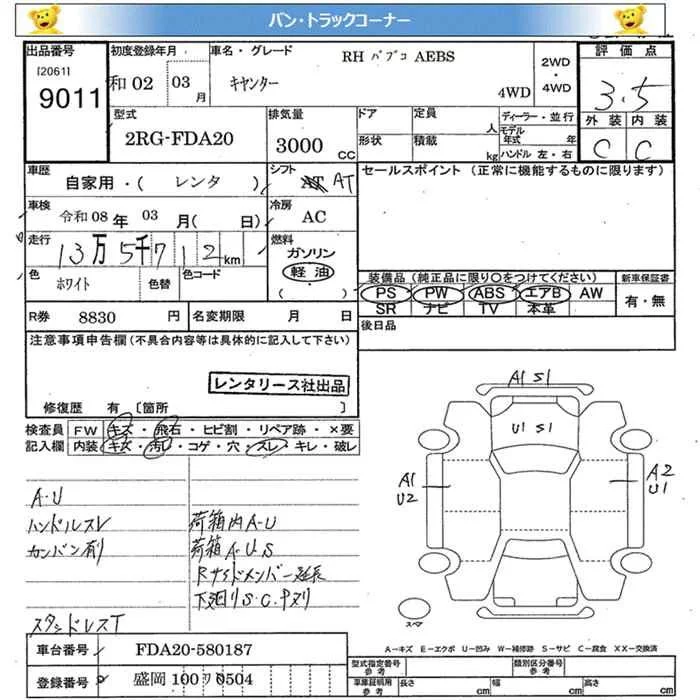 バン・トラックコーナー
出品番号
[2061]
9011
初度登録年月
和02 03月
車名・グレード
RH パブコ AEBS
キャンター
4WD
2WD・4WD
評価点
3.5
外装 内装
C C
型式
2RG-FDA20
排気量
3000 CC
ドア
形状
定員 人
積載 kg
ディーラー・並行
モデル年式 年
ハンドル 左・右
車歴
自家用・( レンタ )
シフト
AT
車検
令和08年 03月( 日)
冷房
AC
走行
13万5千712km
燃料
ガソリン
軽油
( ・ )
色
ホワイト
色替
色コード
セールスポイント(正常に機能するものに限ります)
装備品(純正品に限り○をつけてください)
PS PW ABS エアB AW
SR ナビ TV 本革
新車保証書
有・無
後日品
R券 8830 円
名変期限 月 日
注意事項申告欄(不具合内容等は具体的に記入して下さい)
レンタリース社出品
修復歴 有 [箇所 ]
検査員記入欄
FW キズ・飛石・ヒビ割・リペア跡・×要
内装 キズ・汚レ・コゲ・穴・スレ・キレ・破レ
A・U
ハンドルスレ
カンバン有リ
スタッドレスT
荷箱内A-U
荷箱A・U S
Rサイドメンバー延長
下廻りS.C.中ヌリ
A1 S1
U1 S1
A1
U2
A2
U1
スペア
A-キズ E-エクボ U-凹み W-補修跡 S-サビ C-腐食 XX-交換済
車台番号 FDA20-580187
登録番号 盛岡 100 ヲ 0504
型式指定番号 参考
類別区分番号 参考
車庫証明用 参考
長さ cm 幅 cm 高さ cm